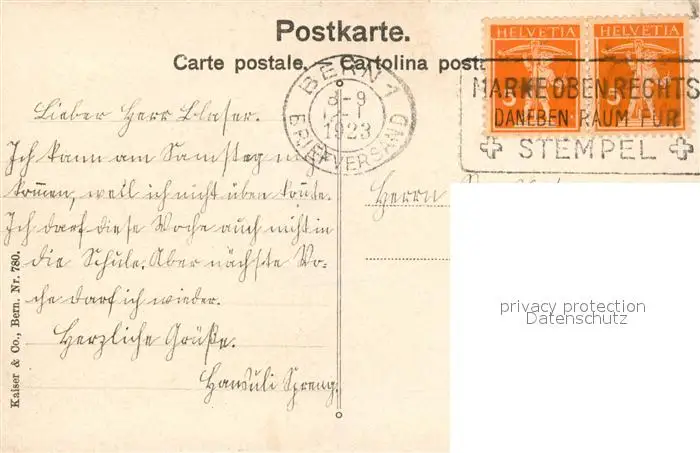 Postkarte.
Carte postale. – Cartolina post
HELVETIA HELVETIA
5 5
BERN 1
8–9
1923
BRIEFVERSAND
MARKE OBEN RECHTS
DANEBEN RAUM FÜR
STEMPEL
Lieber Herr Blaser.
Ich kann am Samstag nicht
kommen, weil ich nicht üben konnte.
Ich darf diese Woche auch nicht in
die Schule. Aber nächste Wo-
che darf ich wieder.
Herzliche Grüße.
Hansuli Spreng.
Herrn
Kaiser & Co., Bern. Nr. 780.
privacy protection
Datenschutz